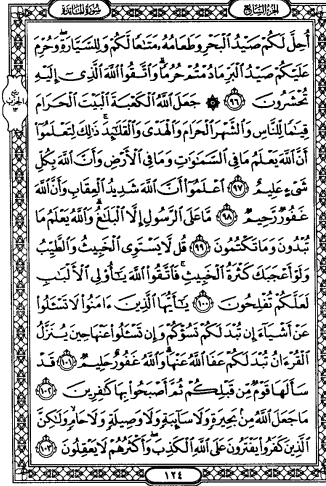 الجزء السابع
سورة المائدة
أُحِلَّ لَكُمْ صَيْدُ ٱلْبَحْرِ وَطَعَامُهُۥ مَتَٰعًا لَّكُمْ وَلِلسَّيَّارَةِ ۖ وَحُرِّمَ
عَلَيْكُمْ صَيْدُ ٱلْبَرِّ مَا دُمْتُمْ حُرُمًا ۗ وَٱتَّقُوا۟ ٱللَّهَ ٱلَّذِىٓ إِلَيْهِ
تُحْشَرُونَ ٩٦ ۞ جَعَلَ ٱللَّهُ ٱلْكَعْبَةَ ٱلْبَيْتَ ٱلْحَرَامَ
قِيَٰمًا لِّلنَّاسِ وَٱلشَّهْرَ ٱلْحَرَامَ وَٱلْهَدْىَ وَٱلْقَلَٰٓئِدَ ۚ ذَٰلِكَ لِتَعْلَمُوٓا۟
أَنَّ ٱللَّهَ يَعْلَمُ مَا فِى ٱلسَّمَٰوَٰتِ وَمَا فِى ٱلْأَرْضِ وَأَنَّ ٱللَّهَ بِكُلِّ
شَىْءٍ عَلِيمٌ ٩٧ ٱعْلَمُوٓا۟ أَنَّ ٱللَّهَ شَدِيدُ ٱلْعِقَابِ وَأَنَّ ٱللَّهَ
غَفُورٌ رَّحِيمٌ ٩٨ مَّا عَلَى ٱلرَّسُولِ إِلَّا ٱلْبَلَٰغُ ۗ وَٱللَّهُ يَعْلَمُ مَا
تُبْدُونَ وَمَا تَكْتُمُونَ ٩٩ قُل لَّا يَسْتَوِى ٱلْخَبِيثُ وَٱلطَّيِّبُ
وَلَوْ أَعْجَبَكَ كَثْرَةُ ٱلْخَبِيثِ ۚ فَٱتَّقُوا۟ ٱللَّهَ يَٰٓأُو۟لِى ٱلْأَلْبَٰبِ
لَعَلَّكُمْ تُفْلِحُونَ ١٠٠ يَٰٓأَيُّهَا ٱلَّذِينَ ءَامَنُوا۟ لَا تَسْـَٔلُوا۟
عَنْ أَشْيَآءَ إِن تُبْدَ لَكُمْ تَسُؤْكُمْ وَإِن تَسْـَٔلُوا۟ عَنْهَا حِينَ يُنَزَّلُ
ٱلْقُرْءَانُ تُبْدَ لَكُمْ عَفَا ٱللَّهُ عَنْهَا ۗ وَٱللَّهُ غَفُورٌ حَلِيمٌ ١٠١ قَدْ
سَأَلَهَا قَوْمٌ مِّن قَبْلِكُمْ ثُمَّ أَصْبَحُوا۟ بِهَا كَٰفِرِينَ ١٠٢
مَا جَعَلَ ٱللَّهُ مِنۢ بَحِيرَةٍ وَلَا سَآئِبَةٍ وَلَا وَصِيلَةٍ وَلَا حَامٍ ۙ وَلَٰكِنَّ
ٱلَّذِينَ كَفَرُوا۟ يَفْتَرُونَ عَلَى ٱللَّهِ ٱلْكَذِبَ ۖ وَأَكْثَرُهُمْ لَا يَعْقِلُونَ ١٠٣
١٢٤